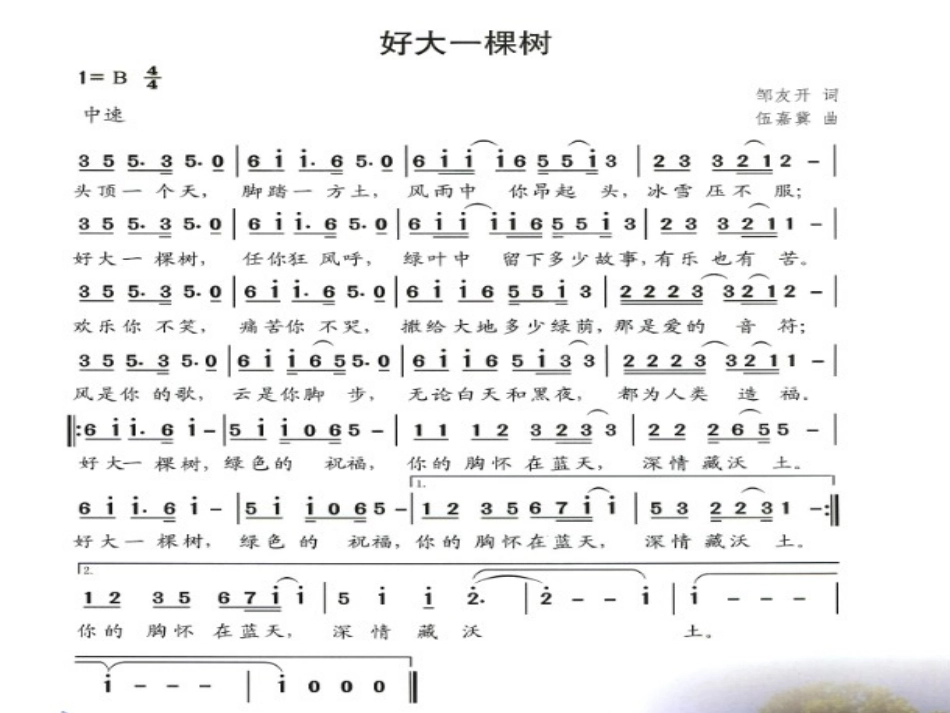 好大一棵树
1= B 4/4
邹友开 词
中速
伍嘉冀 曲
3 5 5. 3 5. 0 | 6 i i. 6 5. 0 | 6 i i i 6 5 5 i 3 | 2 3 3 2 1 2 – |
头顶一个天， 脚踏一方土， 风雨中 你昂起 头，冰雪压不 服；
3 5 5. 3 5. 0 | 6 i i. 6 5. 0 | 6 i i i i 6 5 5 i 3 | 2 3 3 2 1 1 – |
好大一 棵树， 任你狂 风呼， 绿叶中 留下多少故事，有乐也有 苦。
3 5 5. 3 5. 0 | 6 i i. 6 5. 0 | 6 i i 6 5 5 i 3 | 2 2 2 3 3 2 1 2 – |
欢乐你 不笑， 痛苦你 不哭， 撒给大地多少绿荫，那是爱的 音 符；
3 5 5 5. 3 5. 0 | 6 i i 6 5 5. 0 | 6 i i 6 5 i 3 3 | 2 2 2 3 3 2 1 1 – |
风是你 的歌， 云是你脚 步， 无论白天和黑夜， 都为人类 造 福。
‖: 6 i i. 6 i – | 5 i i 0 6 5 – | 1 1 1 2 3 2 3 3 | 2 2 2 6 5 5 – |
好大一 棵树，绿色的 祝福， 你的 胸怀 在蓝天， 深情藏沃 土。
1.
6 i i. 6 i – | 5 i i 0 6 5 – | 1 2 3 5 6 7 i i | 5 3 2 2 3 1 – :‖
好大一 棵树， 绿色 的 祝福，你的 胸怀在蓝天， 深情藏沃 土。
2.
1 2 3 5 6 7 i i | 5 i i 2. | 2 – – i | i – – – |
你的 胸怀 在蓝天， 深 情 藏 沃 土。
i – – – | i 0 0 0 ‖